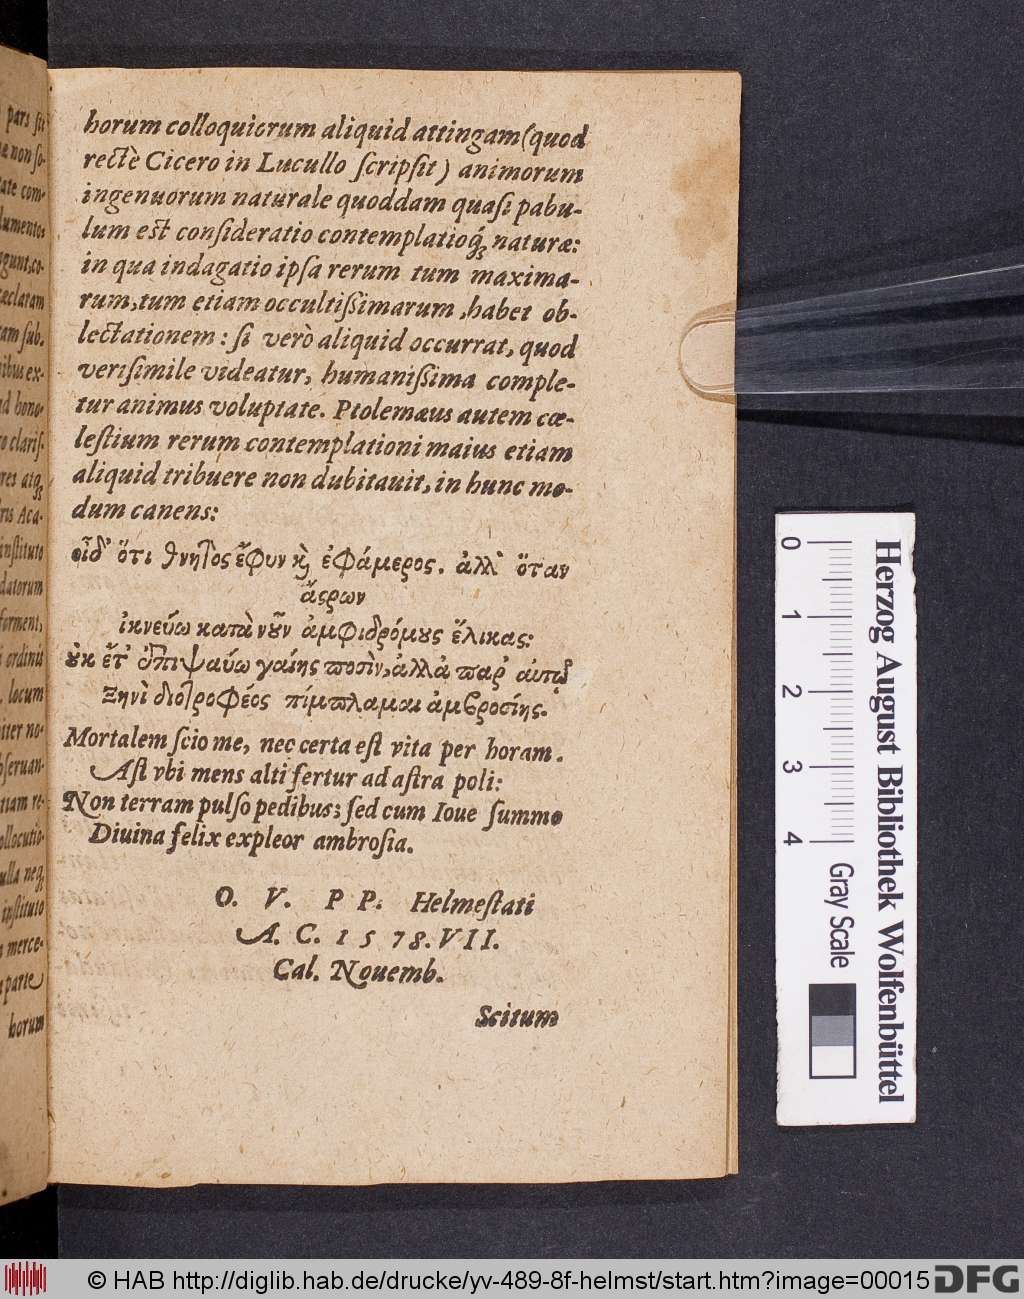 pars sit
non so-
com-
lumentos
gunt, co-
æclaram
am sub.
ibus ex-
d hono-
o clariſ-
res atq́;
ris Aca-
inſtituto
datorum
forment,
ordinis
. locum
iter no-
bſeruan-
tiam re-
ollocutio-
ulla neq́;
inſtituto
merce-
parte
horum
horum colloquiorum aliquid attingam (quod
rectè Cicero in Lucullo ſcripſit) animorum
ingenuorum naturale quoddam quaſi pabu-
lum eſt conſideratio contemplatioq́; naturæ:
in qua indagatio ipſa rerum tum maxima-
rum, tum etiam occultiſſimarum, habet ob-
lectationem: ſi verò aliquid occurrat, quod
veriſimile videatur, humaniſſima comple-
tur animus voluptate. Ptolemæus autem cœ-
leſtium rerum contemplationi maius etiam
aliquid tribuere non dubitauit, in hunc mo-
dum canens:
οἶδ' ὅτι θνητὸς ἔφυν κὶ ἐφάμερος. ἀλλ' ὅταν
ἄςρων
ἰκνεύω κατὰ νοῦν ἀμφιδρόμους ἕλικας:
οὐκ ἔτ' ἐπιψαύω γαίης ποσὶν, ἀλλὰ παρ' αὐτῷ
Ζηνὶ διοτροφέος πίμπλαμαι ἀμβροσίης.
Mortalem ſcio me, nec certa eſt vita per horam.
Aſt vbi mens alti fertur ad aſtra poli:
Non terram pulſo pedibus; ſed cum Ioue ſummo
Diuina felix expleor ambroſia.
O. V. P P. Helmeſtati
A. C. 1578. VII.
Cal. Nouemb.
Scitum
0 1 2 3 4
Gray Scale
Herzog August Bibliothek Wolfenbüttel
© HAB http://diglib.hab.de/drucke/yv-489-8f-helmst/start.htm?image=00015 DFG